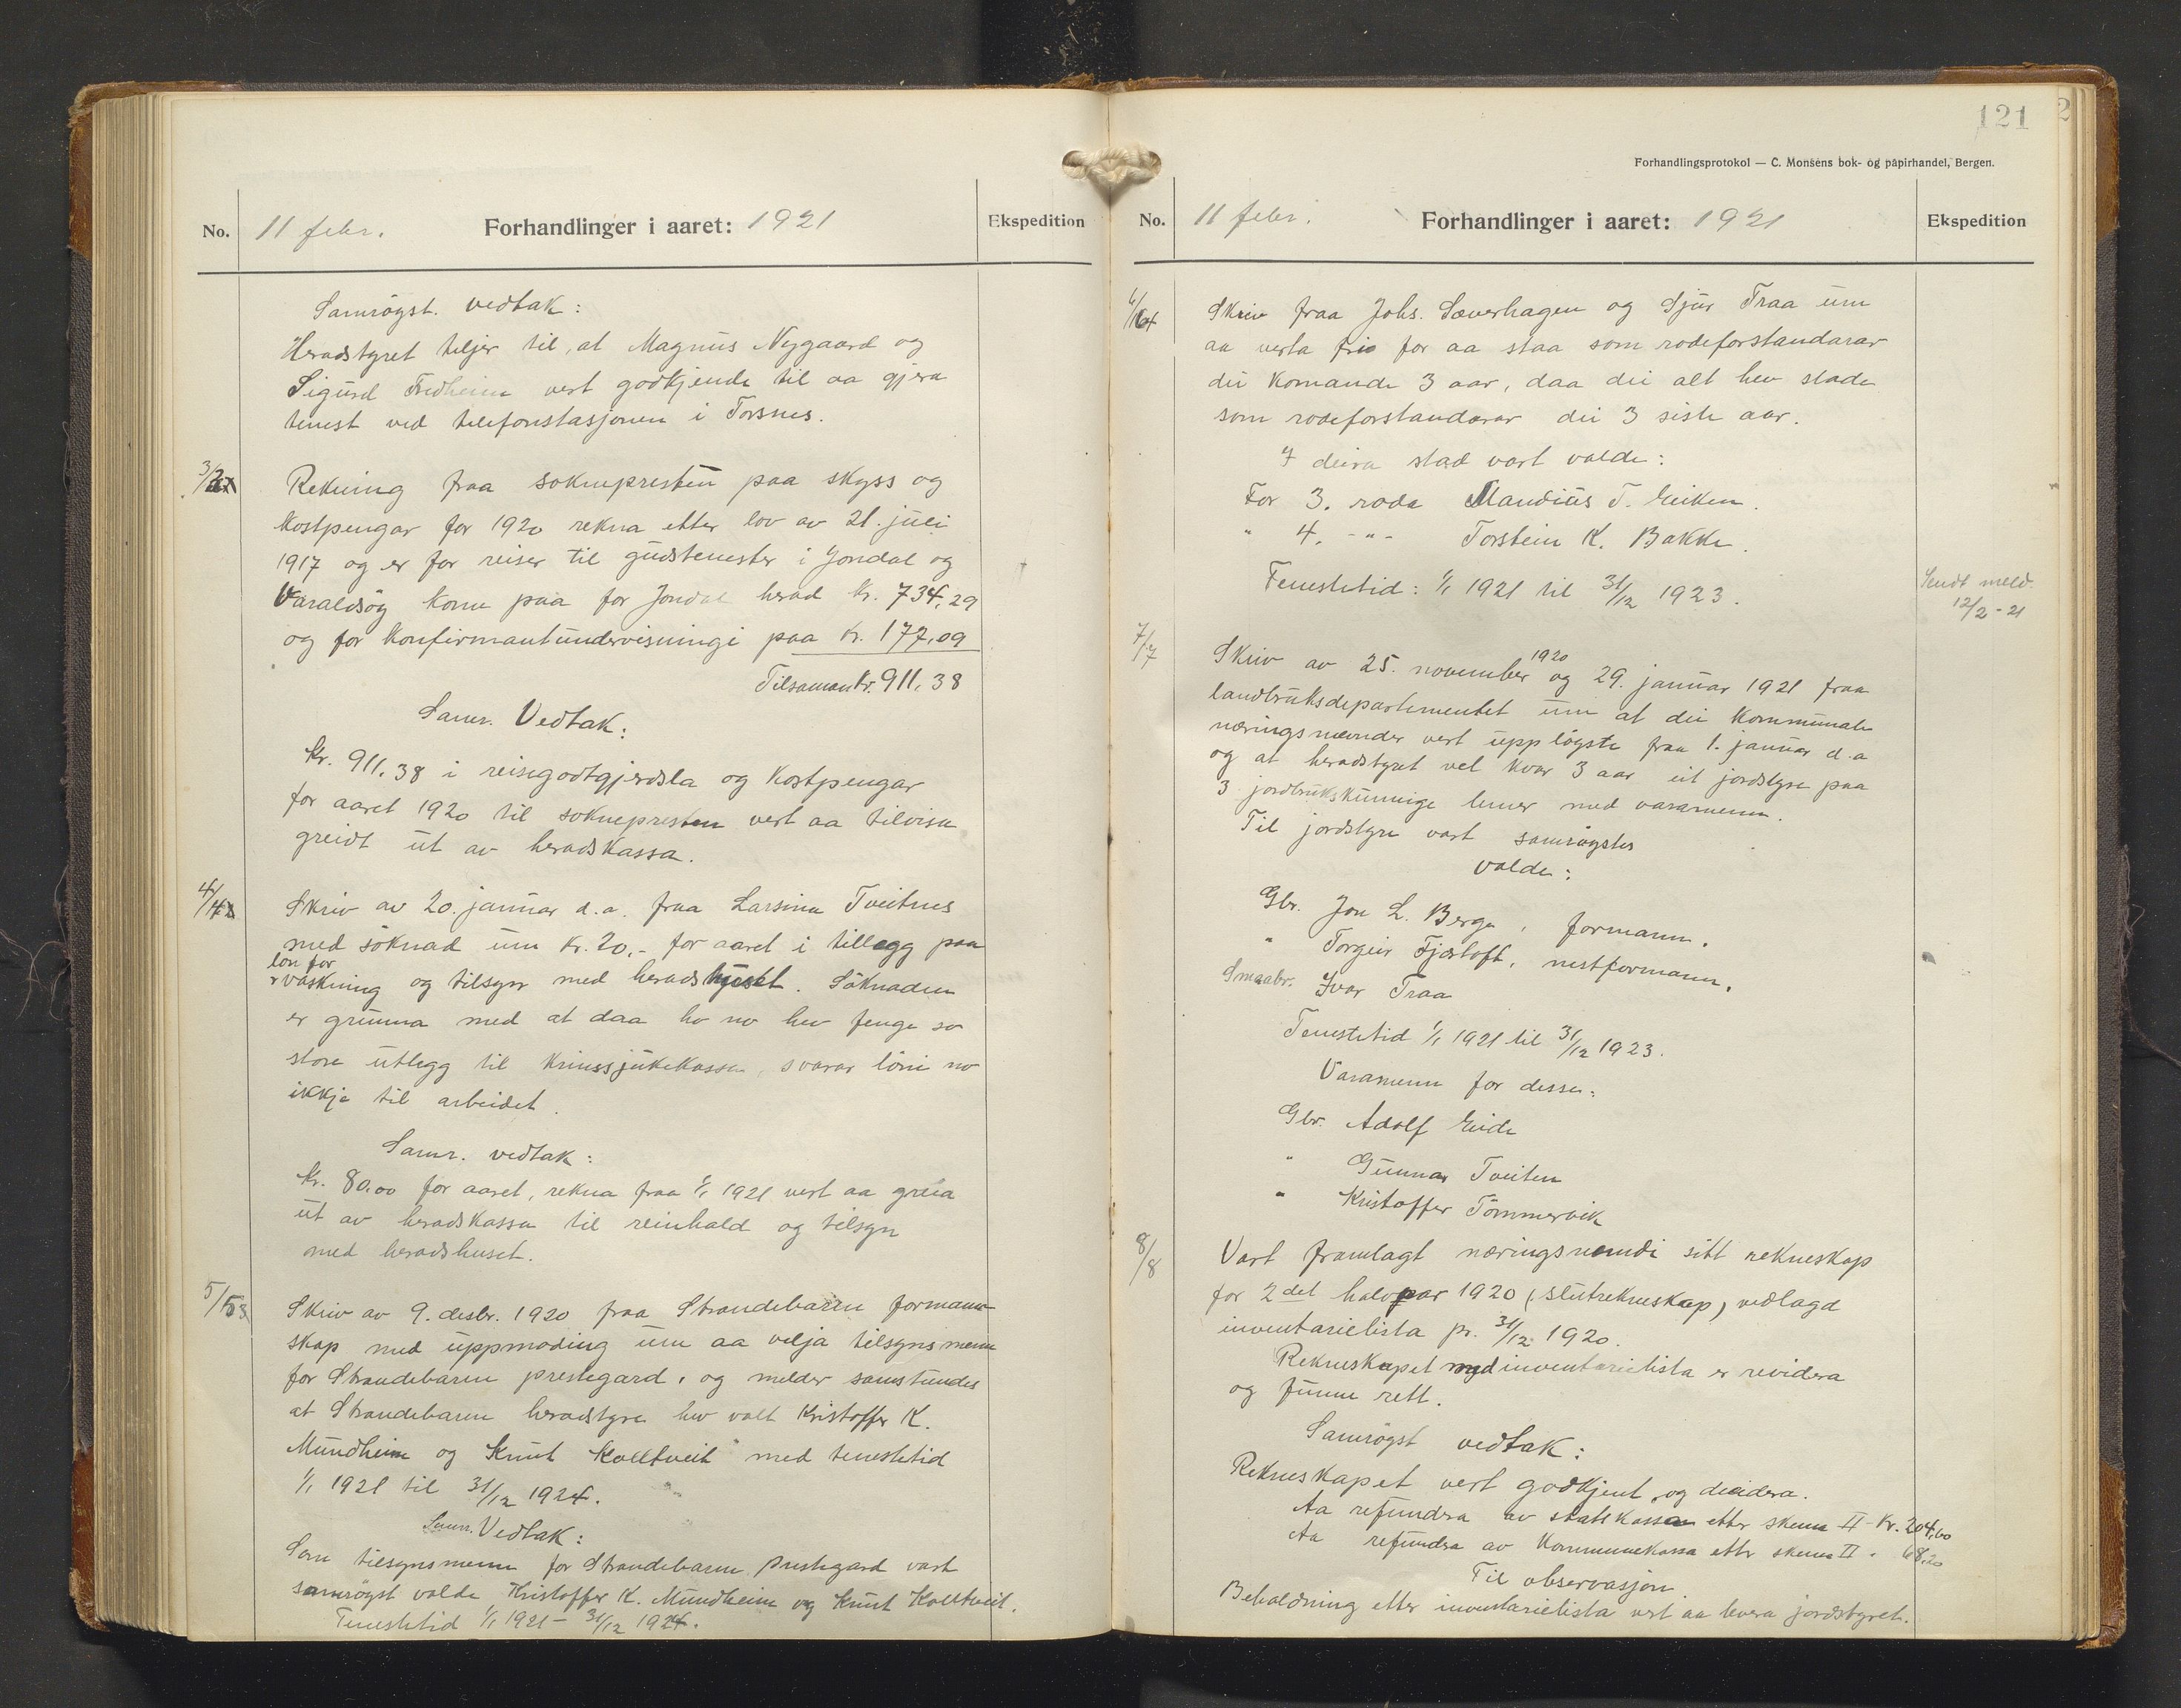 No. 11 febr. Forhandlinger i aaret: 1921 Ekspedition
Samrøgst. vedtak:
Heradstyret tiljer til, at Magnus Nygaard og
Sigurd Fredheim vert godkjende til aa gjera
tenest ved telefonstasjonen i Torsnes.
3/
Rekning fraa soknepresten paa skyss og
kostpengar for 1920 rekna etter lov av 21. juli
1917 og er for reiser til gudstenester i Jondal og
Varaldsøy kom paa for Jondal herad kr. 734,29
og for konfirmantundervisningi paa kr. 177,09
Tilsaman kr. 911,38
Samr. Vedtak:
Kr. 911,38 i reisegodtgjerdsla og kostpengar
for aaret 1920 til soknepresten vert aa tilvisa
greidt ut av heradskassa.
4/4
Skriv av 20. januar d.a. fraa Larsina Tveitnes
med søknad um kr. 20.- for aaret i tillegg paa
løn for
vaskning og tilsyn med heradshuset. Søknaden
er grunna med at daa ho no hev fenge so
store utlegg til krinssjukekassa, svarar løni no
ikkje til arbeidet.
Samr. vedtak:
Kr. 80.00 for aaret, rekna fraa 1/1 1921 vert aa greia
ut av heradskassa til reinhald og tilsyn
med heradshuset.
5/5
Skriv av 9. desbr. 1920 fraa Strandebarm formann-
skap med uppmoding um aa velja tilsynsmenn
for Strandebarm prestegard, og melder samstundes
at Strandebarm heradstyre hev valt Kristoffer K.
Mundheim og Knut Kolltveit med tenestetid
1/1 1921 til 31/12 1924.
Samr. Vedtak:
Som tilsynsmenn for Strandebarm prestegard vart
samrøgst valde Kristoffer K. Mundheim og Knut Kolltveit.
Tenestetid 1/1 1921 - 31/12 1924.
121
Forhandlingsprotokol — C. Monsens bok- og papirhandel, Bergen.
No. 11 febr. Forhandlinger i aaret: 1921 Ekspedition
6/6
Skriv fraa Johs. Sæverhagen og Sjur Traa um
aa verta fri for aa staa som rodeforstandarar
dei komande 3 aar, daa dei alt hev stade
som rodeforstandarar dei 3 siste aar.
I deira stad vart valde:
For 3. roda Mandius T. Eiken.
" 4. -"- Torstein K. Bakke.
Tenestetid: 1/1 1921 til 31/12 1923.
Sendt meld.
12/2-21
7/7
Skriv av 25. november 1920 og 29. januar 1921 fraa
landbruksdepartementet um at dei kommunale
næringsnemnder vert uppløyste fraa 1. januar d.a
og at heradstyret vel kvar 3 aar eit jordstyre paa
3 jordbrukskunnige lemer med varamenn.
Til jordstyre vart samrøgstes
valde:
Gbr. Jon L. Berge, formann.
" Torgeir Fjærtoft, nestformann.
Smaabr. Ivar Traa
Tenestetid 1/1 1921 til 31/12 1923.
Varamenn for desse:
Gbr. Adolf Eide
" Gunnar Tveiten
" Kristoffer Tømmervik
8/8
Vart framlagt næringsnemndi sitt rekneskap
for 2det halvaar 1920 (slutrekneskap) vedlagd
inventarielista pr. 31/12 1920.
Rekneskapet med inventarielista er revidera
og funne rett.
Samrøgst vedtak:
Rekneskapet vert godkjent og decidera.
Aa refundera av statskassa etter skema II - kr. 204,00
Aa refundera av Kommunekassa etter skema II " 68,20
Til observasjon.
Behaldning etter inventarielista vert aa levera jordstyret.